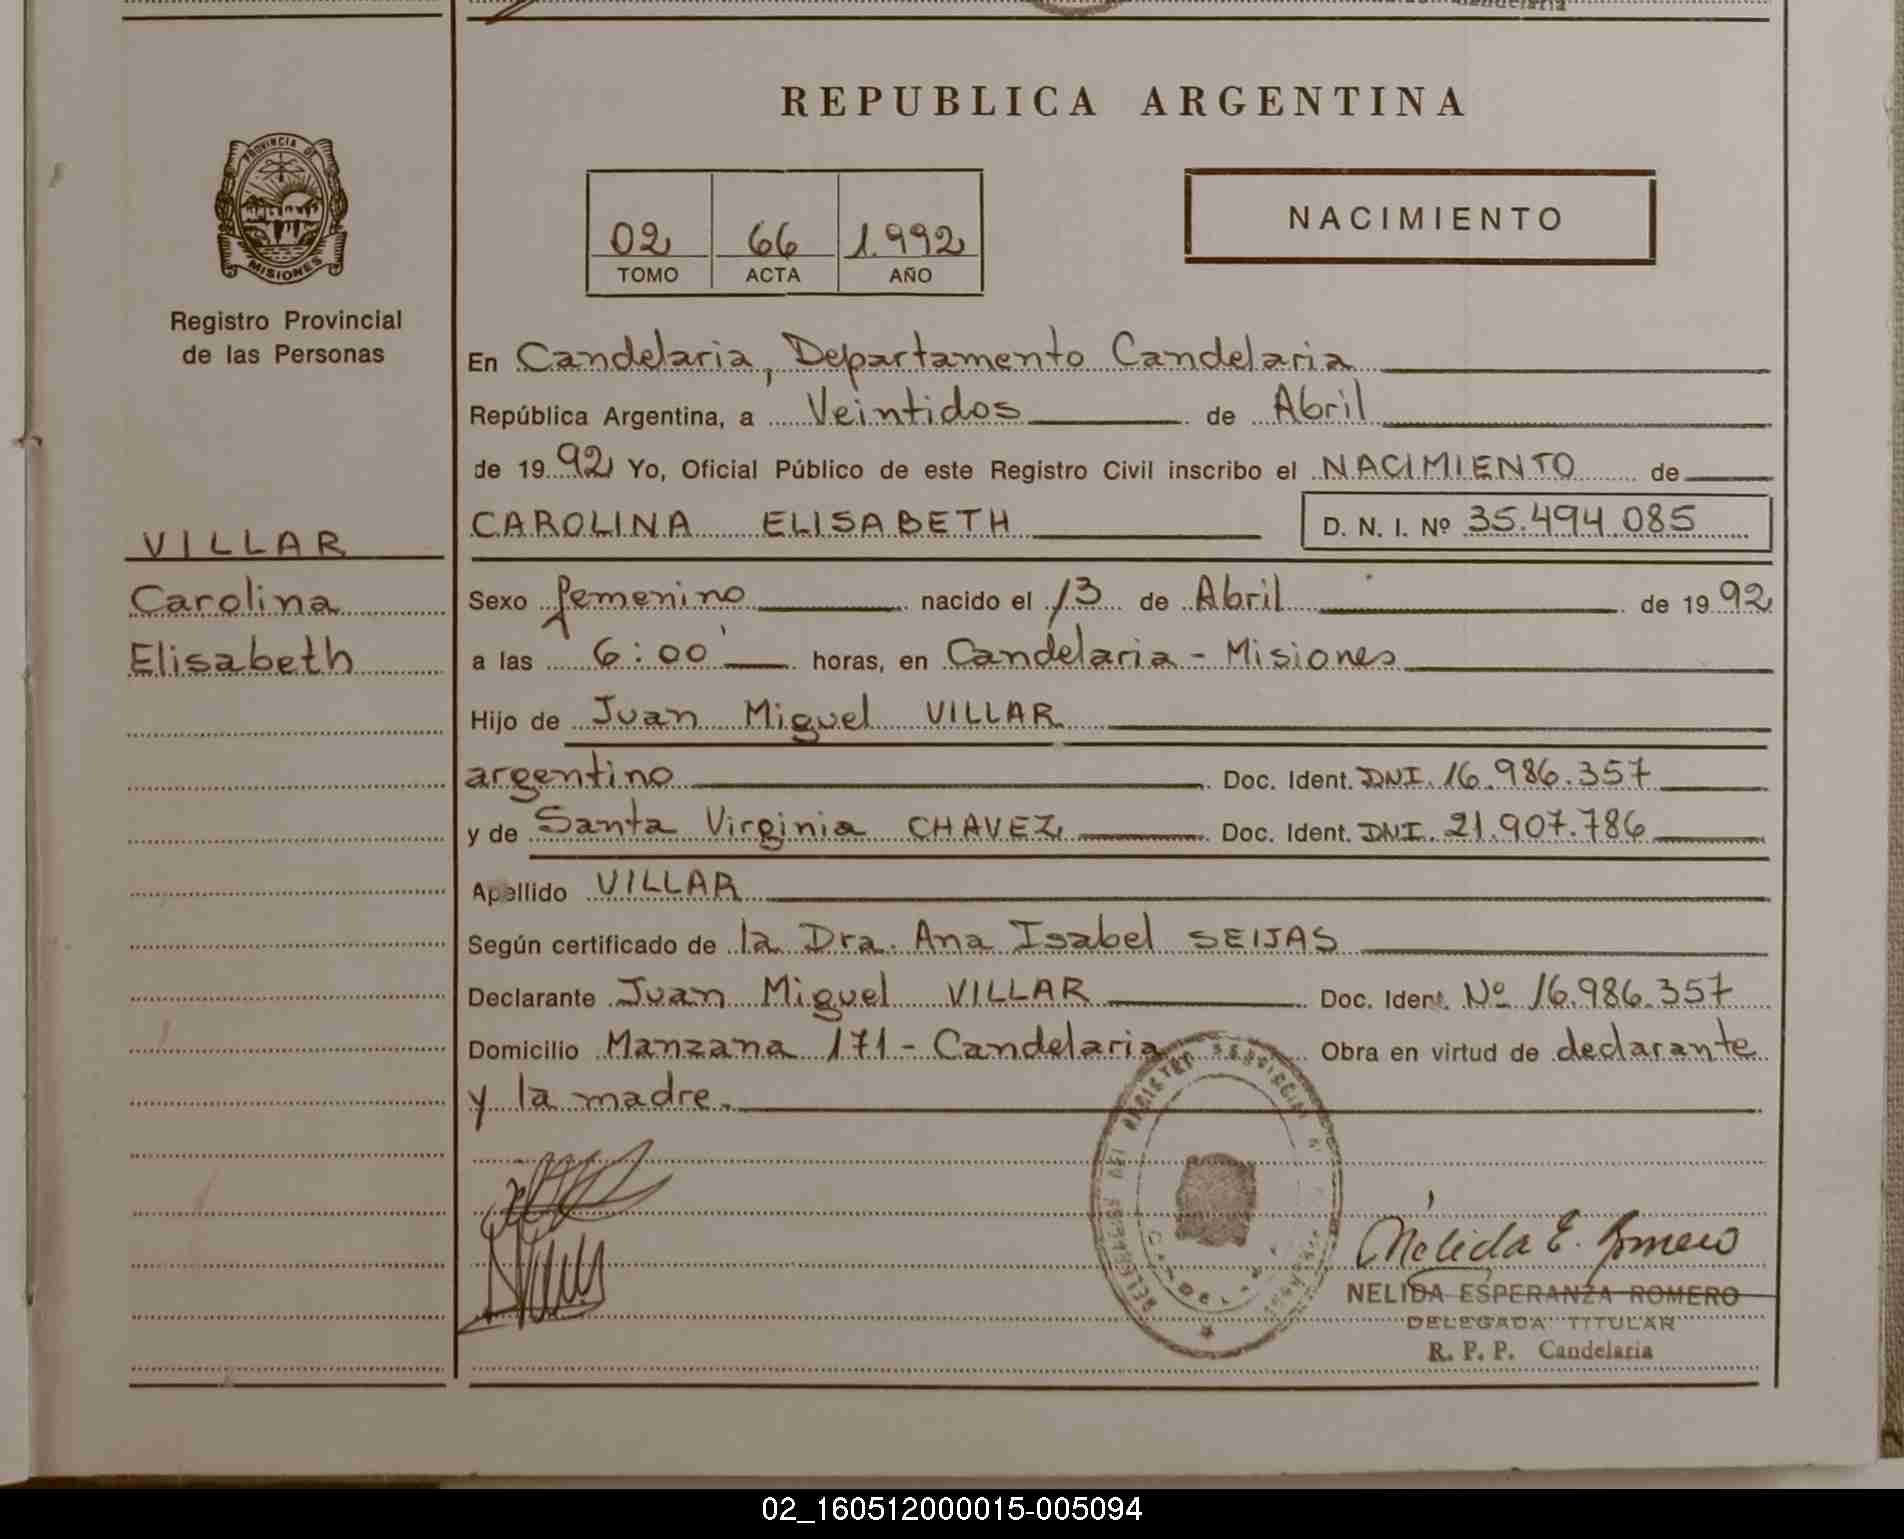 Candelaria
REPUBLICA ARGENTINA
PROVINCIA DE
MISIONES
Registro Provincial
de las Personas
02 66 1.992
TOMO ACTA AÑO
NACIMIENTO
En Candelaria, Departamento Candelaria
República Argentina, a Veintidos de Abril
de 1992 Yo, Oficial Público de este Registro Civil inscribo el NACIMIENTO de
CAROLINA ELISABETH D. N. I. Nº 35.494.085
VILLAR
Carolina
Elisabeth
Sexo femenino nacido el 13 de Abril de 1992
a las 6:00' horas, en Candelaria - Misiones
Hijo de Juan Miguel VILLAR
argentino Doc. Ident. DNI. 16.986.357
y de Santa Virginia CHAVEZ Doc. Ident. DNI. 21.907.786
Apellido VILLAR
Según certificado de la Dra. Ana Isabel SEIJAS
Declarante Juan Miguel VILLAR Doc. Ident. Nº 16.986.357
Domicilio Manzana 171 - Candelaria Obra en virtud de declarante
y la madre.
Nélida E. Romero
NELIDA ESPERANZA ROMERO
DELEGADA TITULAR
R. P. P. Candelaria
02_160512000015-005094